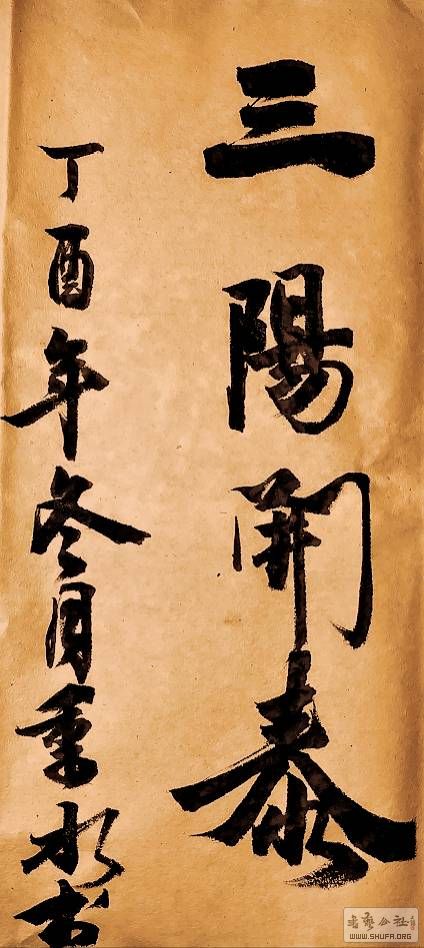 三陽開泰
丁酉年冬月重水书
WWW.SHUFA.ORG